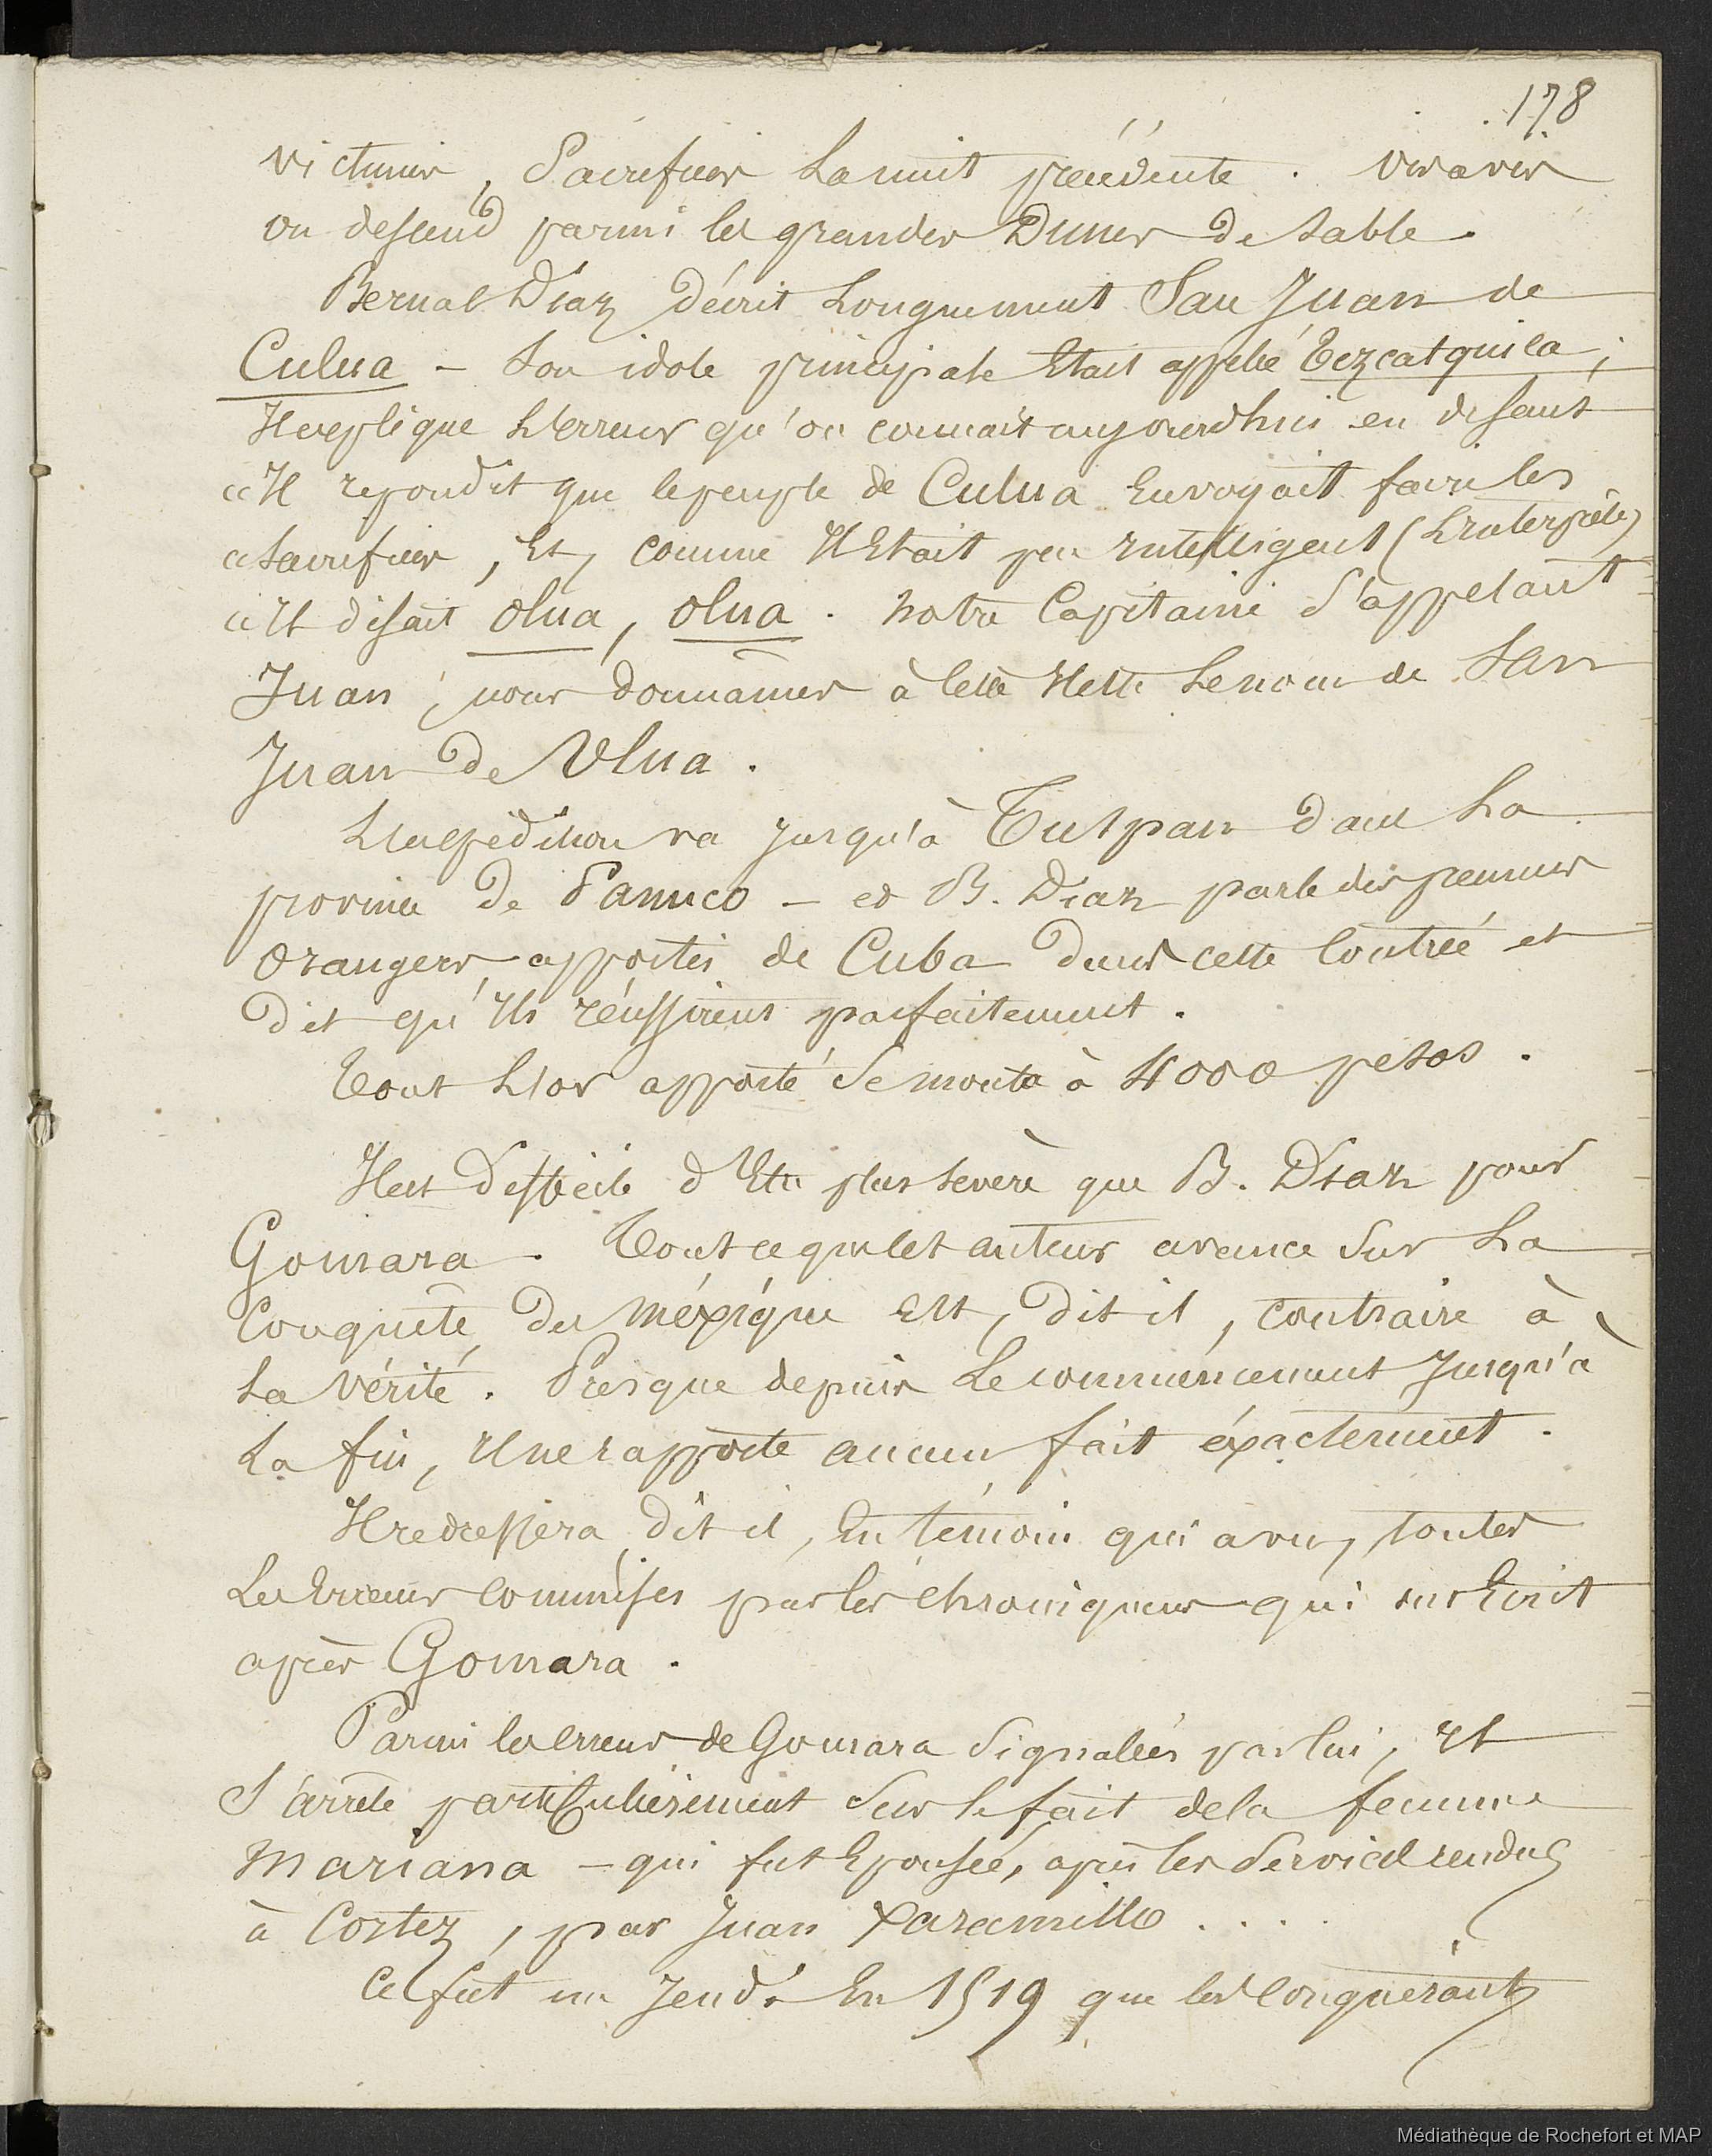 178
victimes, Sacrifiées La nuit précédente. Vis à vis
on descend parmi les grandes Dunes de Sable.
Bernal Diaz décrit Longuement San Juan de
Culua – Son idole principale Etait appelé Tezcatquica ;
Il explique L'erreur qu'on connait aujourdhui en disant
« Il repondit que le peuple de Culua Envoyait faire les
« Sacrifices, Et, comme Il Etait peu Intelligent (L'interprète)
« Il disait olua, olua. Notre Capitaine S'appelant
Juan, nous donnâmes à Cette Ilette Le nom de San
Juan de Ulua.
L'expédition va Jusqu'à Tuspan dans La
province de Panuco – et B. Diaz parle des premiers
Orangers apportés de Cuba dans cette Contrée et
dit qu'Ils réussirent parfaitement.
Tout L'or apporté Se monta à 4000 pesos.
Il est Difficile d'Etre plus Sevère que B. Diaz pour
Gomara. Tout ce que cet auteur avance Sur La
Conquête du Méxique Est, dit il, contraire à
La Vérité. Presque depuis Le commencement Jusqu'à
La fin, Il ne rapporte aucun fait éxactement.
Il redressera dit il, En témoin qui a vu, toutes
Les Erreurs Commises par les chroniqueurs qui ont Ecrit
après Gomara.
Parmi les Erreurs de Gomara Signalées par lui, Il
S'arrête particulièrement Sur le fait de la femme
Mariana – qui fut Epousée, après les Services rendus
à Cortez, par Juan Xaramillo ....
Ce fut un Jeudi En 1519 que les Conquérants
Médiathèque de Rochefort et MAP